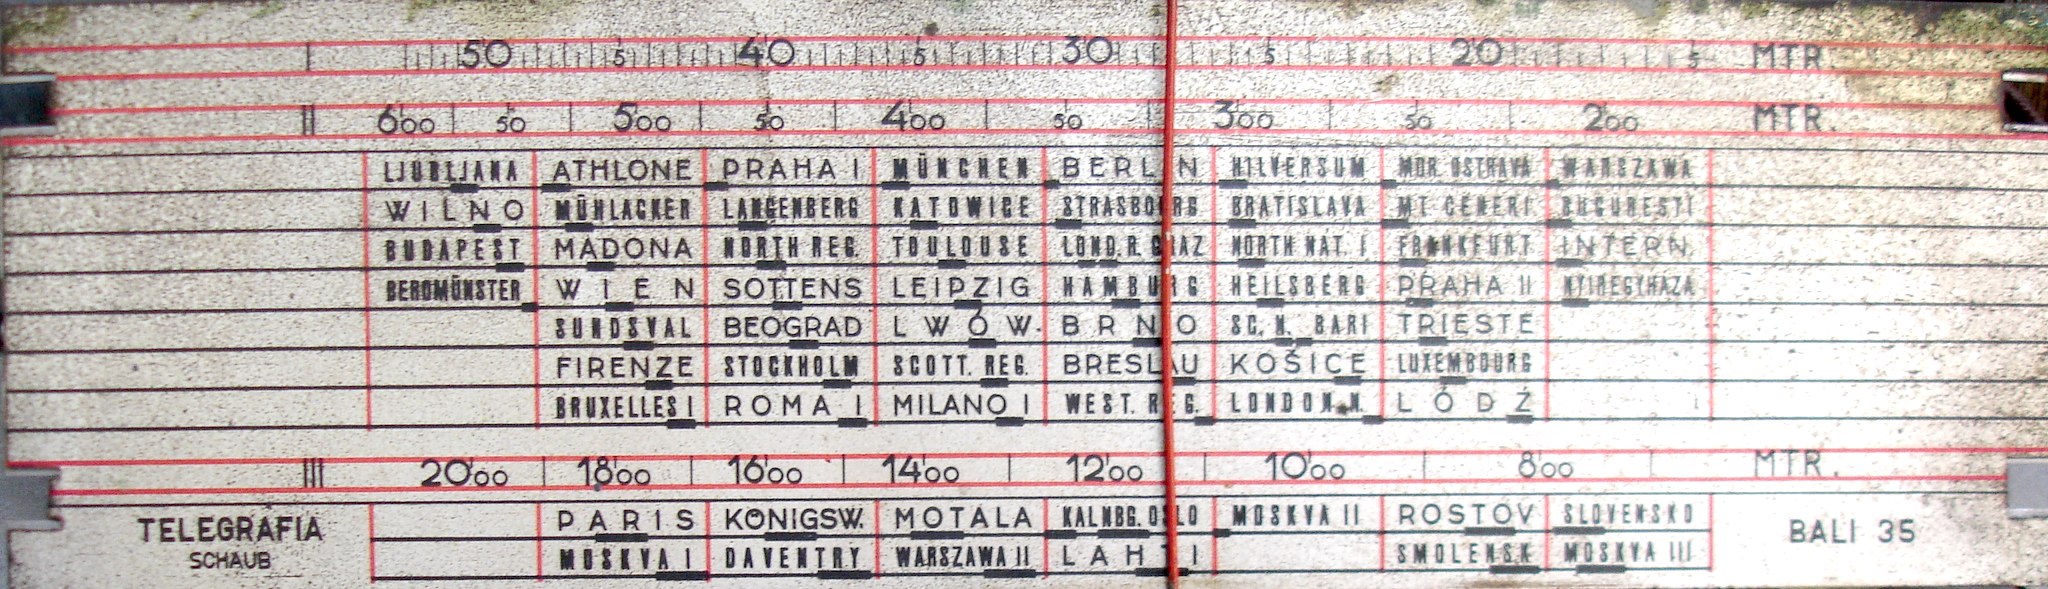 I 50 5 40 5 30 5 20 5 MTR.
II 600 50 500 50 400 50 300 50 200 MTR.
LJUBLJANA ATHLONE PRAHA I MÜNCHEN BERLIN HILVERSUM MOR. OSTRAVA WARSZAWA
WILNO MÜHLACKER LANGENBERG KATOWICE STRASBOURG BRATISLAVA MT. CENERI BUCURESTI
BUDAPEST MADONA NORTH REG. TOULOUSE LOND. R. GRAZ NORTH NAT. I FRANKFURT INTERN.
BEROMÜNSTER WIEN SOTTENS LEIPZIG HAMBURG HEILSBERG PRAHA II NYIREGYHAZA
SUNDSVAL BEOGRAD LWÓW. BRNO SC. N. BARI TRIESTE
FIRENZE STOCKHOLM SCOTT. REG. BRESLAU KOŠICE LUXEMBOURG
BRUXELLES I ROMA I MILANO I WEST. REG. LONDON N. LÓDŹ
III 2000 1800 1600 1400 1200 1000 800 MTR.
TELEGRAFIA PARIS KÖNIGSW. MOTALA KALNBG. OSLO MOSKVA II ROSTOV SLOVENSKO BALI 35
SCHAUB MOSKVA I DAVENTRY WARSZAWA II LAHTI SMOLENSK MOSKVA III